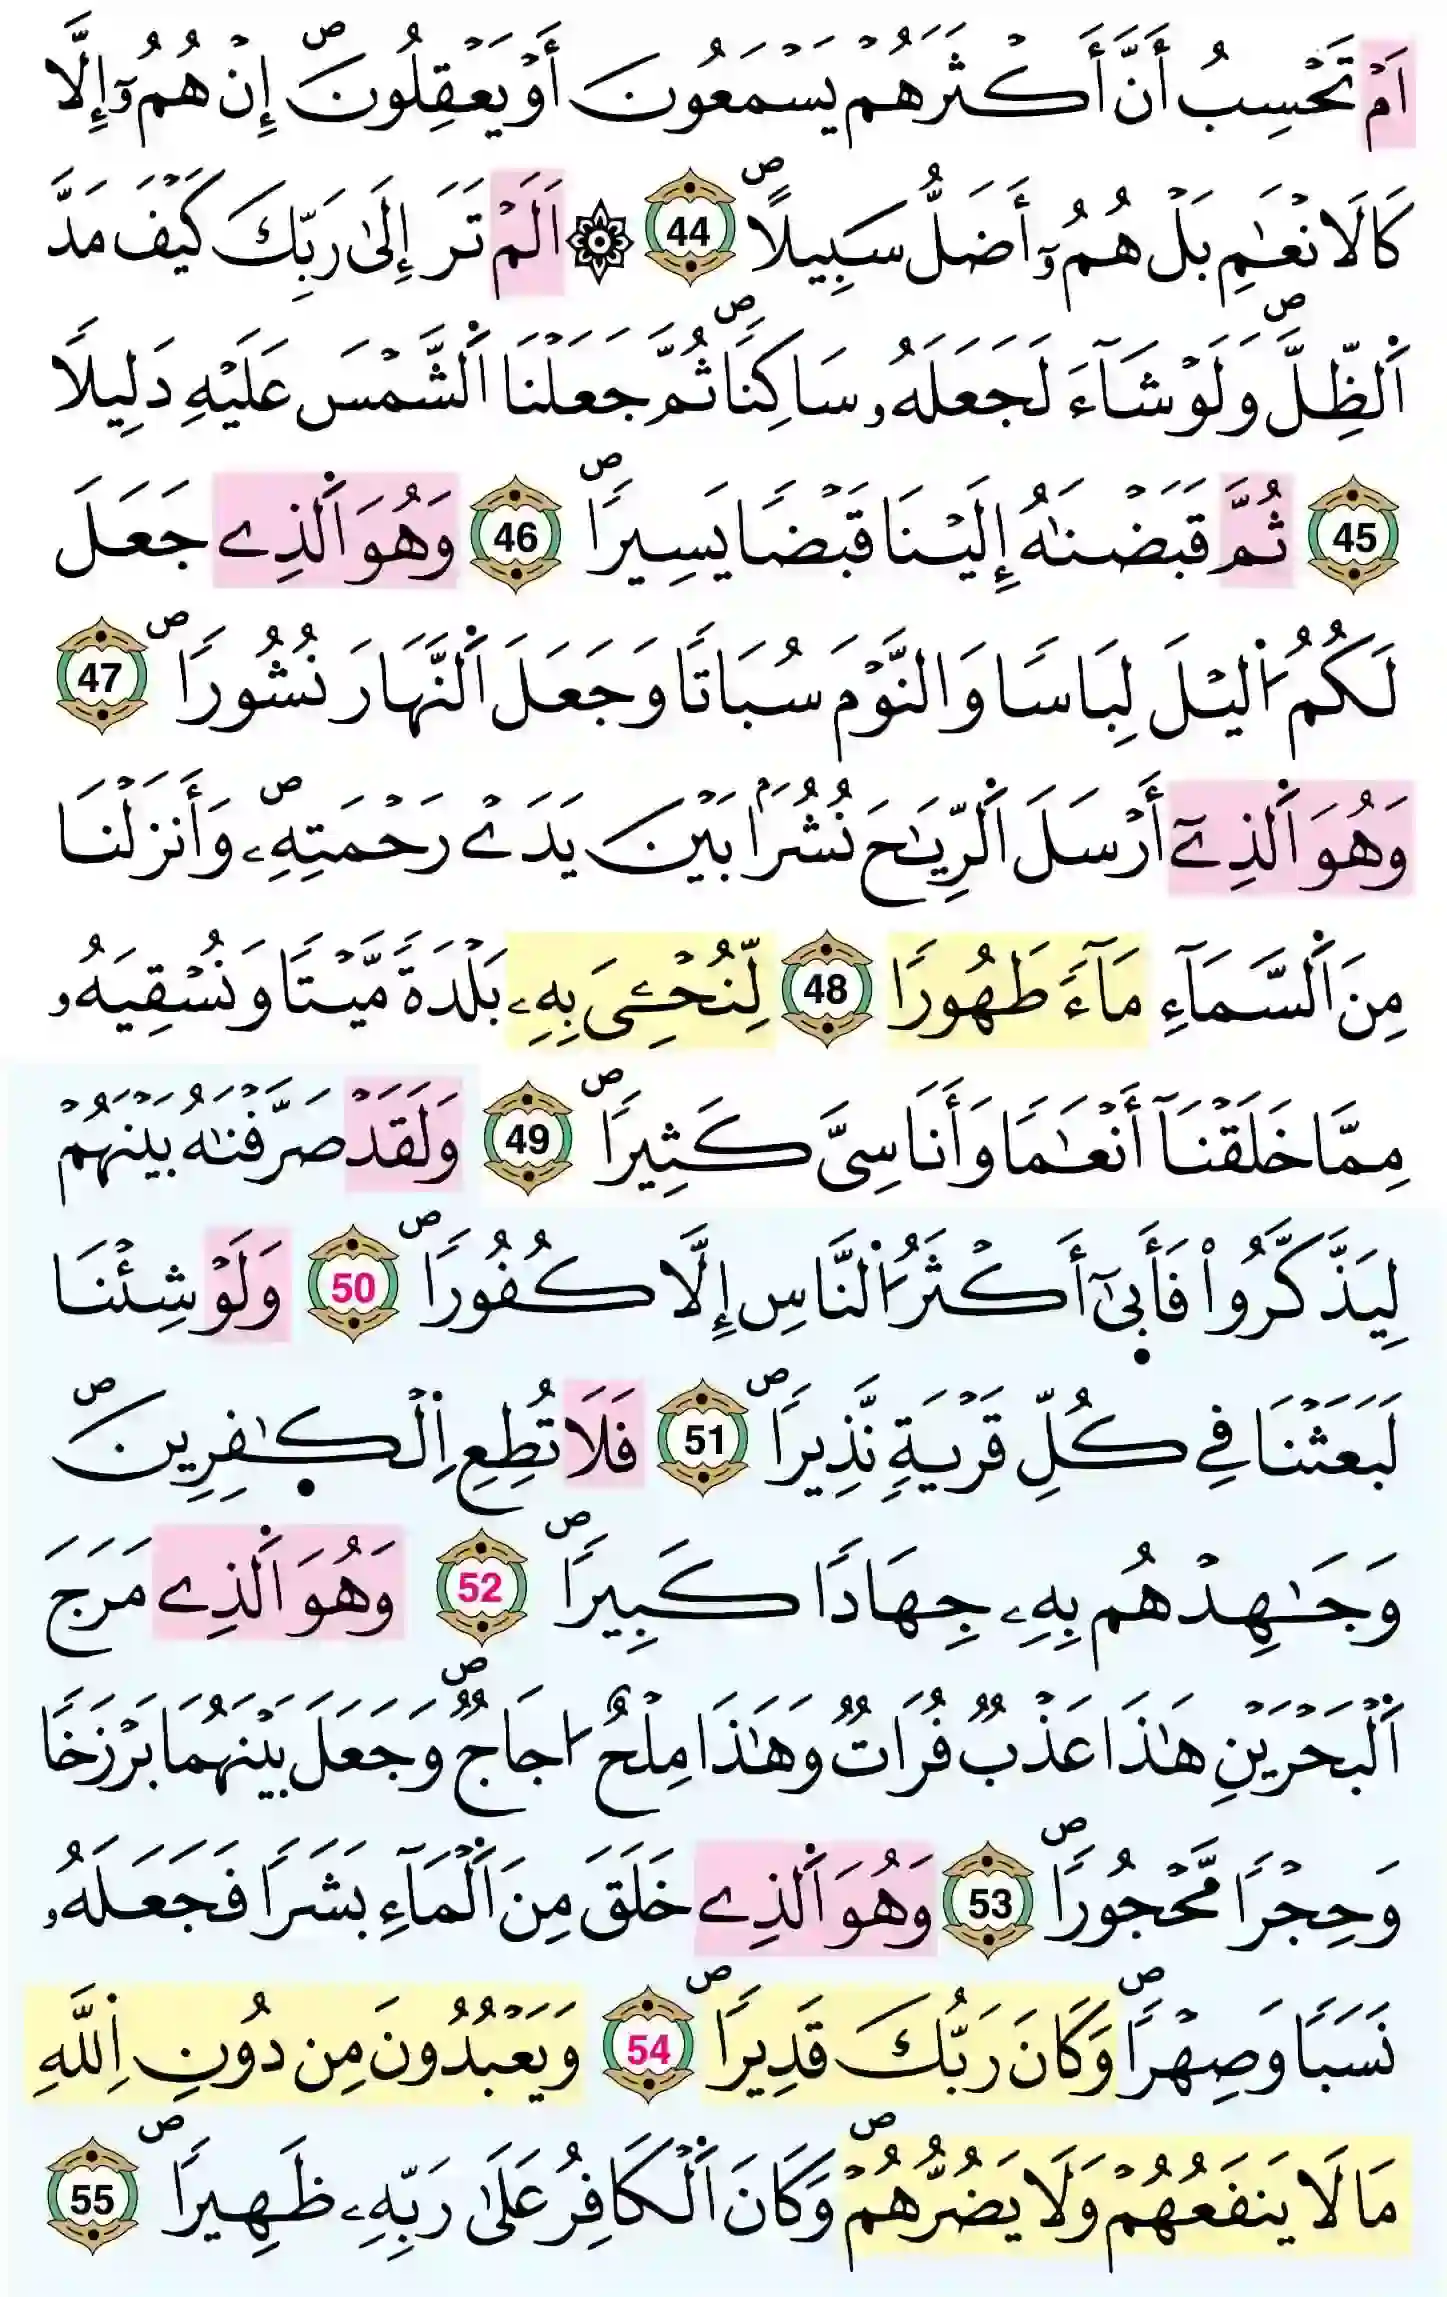 اَمْ تَحْسِبُ أَنَّ أَكْثَرَهُمْ يَسْمَعُونَ أَوْ يَعْقِلُونَۖ إِنْ هُمُۥٓ إِلَّا
كَالَانْعَٰمِ بَلْ هُمُۥٓ أَضَلُّ سَبِيلًاۖ 44 ۞ اَلَمْ تَرَ إِلَىٰ رَبِّكَ كَيْفَ مَدَّ
اَ۬لظِّلَّۖ وَلَوْ شَآءَ لَجَعَلَهُۥ سَاكِنًاۖ ثُمَّ جَعَلْنَا اَ۬لشَّمْسَ عَلَيْهِ دَلِيلًا
45 ثُمَّ قَبَضْنَٰهُ إِلَيْنَا قَبْضًا يَسِيرًاۖ 46 وَهُوَ اَ۬لذِے جَعَلَ
لَكُمُ اُ۬ليْلَ لِبَاسًا وَالنَّوْمَ سُبَاتًا وَجَعَلَ اَ۬لنَّهَارَ نُشُورًاۖ 47
وَهُوَ اَ۬لذِےٓ أَرْسَلَ اَ۬لرِّيَٰحَ نُشُرَۢا بَيْنَ يَدَےْ رَحْمَتِهِۦۖ وَأَنزَلْنَا
مِنَ اَ۬لسَّمَآءِ مَآءً طَهُورًا 48 لِّنُحْـِۧيَ بِهِۦ بَلْدَةً مَّيْتًا وَنُسْقِيَهُۥ
مِمَّا خَلَقْنَآ أَنْعَٰمًا وَأَنَاسِيَّ كَثِيرًاۖ 49 وَلَقَدْ صَرَّفْنَٰهُ بَيْنَهُمْ
لِيَذَّكَّرُواْ فَأَب۪ىٰٓ أَكْثَرُ اُ۬لنَّاسِ إِلَّا كُفُورًاۖ 50 وَلَوْ شِئْنَا
لَبَعَثْنَا فِي كُلِّ قَرْيَةٍ نَّذِيرًاۖ 51 فَلَا تُطِعِ اِ۬لْكٰ۪فِرِينَۖ
وَجَٰهِدْهُم بِهِۦ جِهَادًا كَبِيرًاۖ 52 وَهُوَ اَ۬لذِے مَرَجَ
اَ۬لْبَحْرَيْنِ هَٰذَا عَذْبٌ فُرَاتٌ وَهَٰذَا مِلْحٌ اُجَاجٌۖ وَجَعَلَ بَيْنَهُمَا بَرْزَخًا
وَحِجْرًا مَّحْجُورًاۖ 53 وَهُوَ اَ۬لذِے خَلَقَ مِنَ اَ۬لْمَآءِ بَشَرًا فَجَعَلَهُۥ
نَسَبًا وَصِهْرًاۖ وَكَانَ رَبُّكَ قَدِيرًاۖ 54 وَيَعْبُدُونَ مِن دُونِ اِ۬للَّهِ
مَا لَا يَنفَعُهُمْ وَلَا يَضُرُّهُمْۖ وَكَانَ اَ۬لْكَافِرُ عَلَىٰ رَبِّهِۦ ظَهِيرًاۖ 55